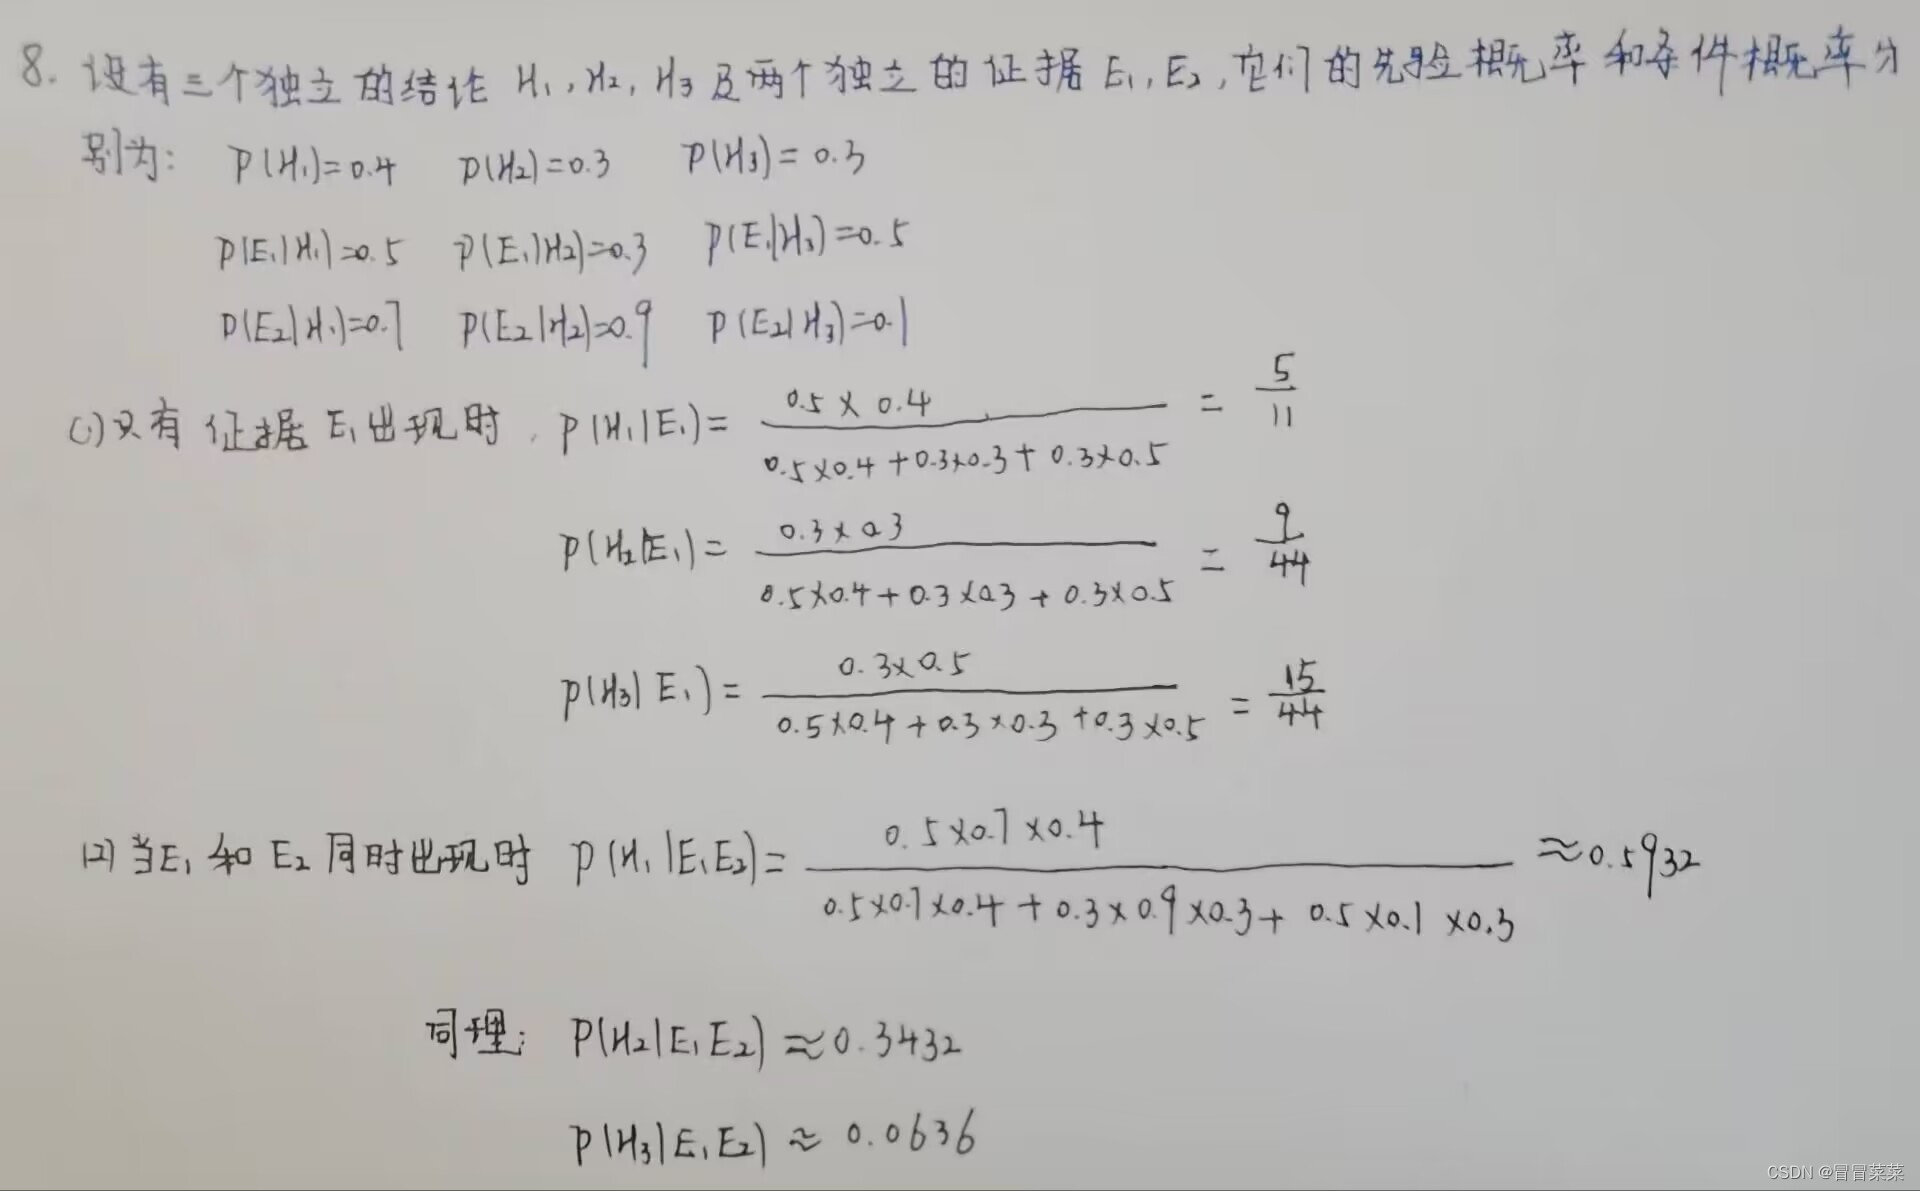 8. 设有三个独立的结论 H₁, H₂, H₃ 及两个独立的证据 E₁, E₂, 它们的先验概率和条件概率分
别为: P(H₁)=0.4 P(H₂)=0.3 P(H₃)=0.3
P(E₁|H₁)=0.5 P(E₁|H₂)=0.3 P(E₁|H₃)=0.5
P(E₂|H₁)=0.7 P(E₂|H₂)=0.9 P(E₂|H₃)=0.1
(1)只有证据E₁出现时, P(H₁|E₁)= 0.5×0.4 / 0.5×0.4+0.3×0.3+0.3×0.5 = 5/11
P(H₂|E₁)= 0.3×0.3 / 0.5×0.4+0.3×0.3+0.3×0.5 = 9/44
P(H₃|E₁)= 0.3×0.5 / 0.5×0.4+0.3×0.3+0.3×0.5 = 15/44
(2)当E₁和E₂同时出现时 P(H₁|E₁E₂)= 0.5×0.7×0.4 / 0.5×0.7×0.4+0.3×0.9×0.3+0.5×0.1×0.3 ≈0.5932
同理: P(H₂|E₁E₂)≈0.3432
P(H₃|E₁E₂)≈0.0636
CSDN @冒冒菜菜